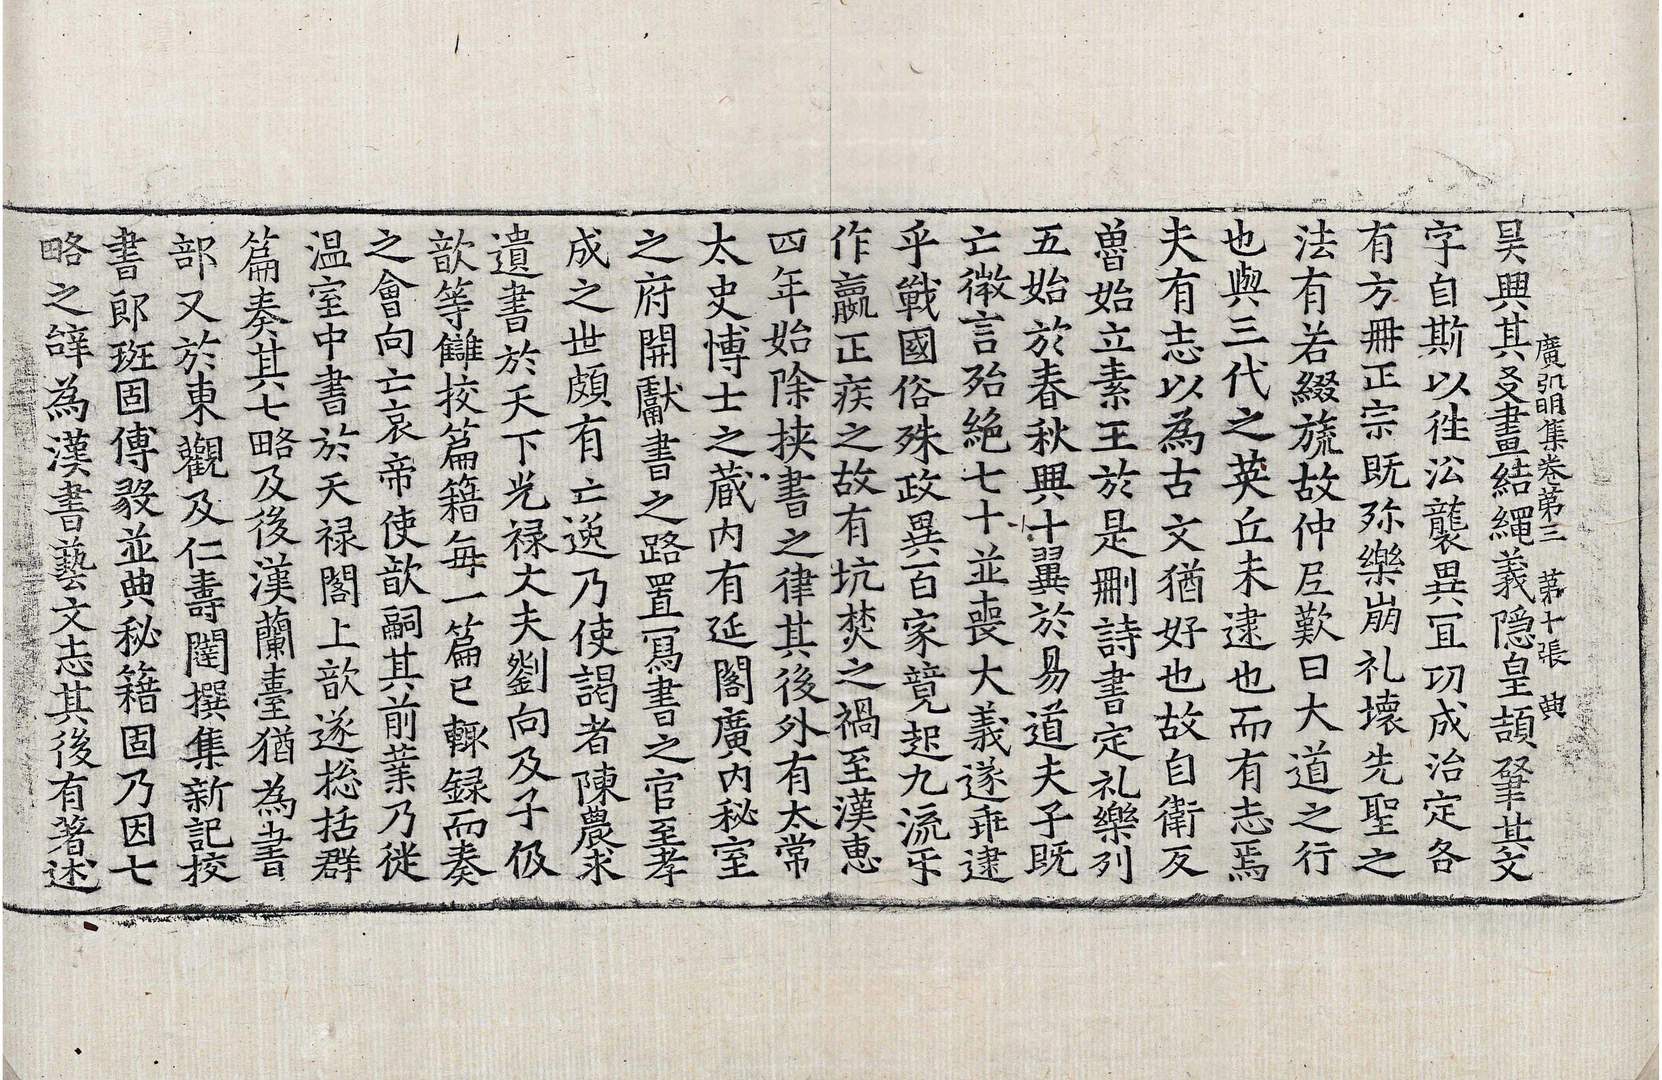 廣弘明集卷第三 第十張 典
昊興其爻畫結繩義隠皇頡肇其文
字自斯以往㳂襲異宜功成治定各
有方冊正宗既殄樂崩礼壊先聖之
法有若綴旒故仲𡰱歎曰大道之行
也與三代之英丘未逮也而有志焉
夫有志以為古文猶好也故自衛反
魯始立素王於是刪詩書定礼樂列
五始於春秋興十翼於易道夫子既
亡微言殆絶七十並喪大義遂乖逮
乎戰國俗殊政異百家競起九流㸦
作嬴正疾之故有坑焚之禍至漢惠
四年始除挾書之律其後外有太常
太史博士之蔵内有延閣廣内秘室
之府開獻書之路置寫書之官至孝
成之世頗有亡逸乃使謁者陳農求
遺書於天下光禄大夫劉向及子伋
歆等讎挍篇籍每一篇已輙録而奏
之會向亡哀帝使歆嗣其前業乃從
温室中書於天禄閣上歆遂捴括群
篇奏其七略及後漢蘭臺猶為書
部又於東觀及仁壽闥撰集新記挍
書郎班固傅毅並典秘籍固乃因七
略之辭為漢書藝文志其後有著述